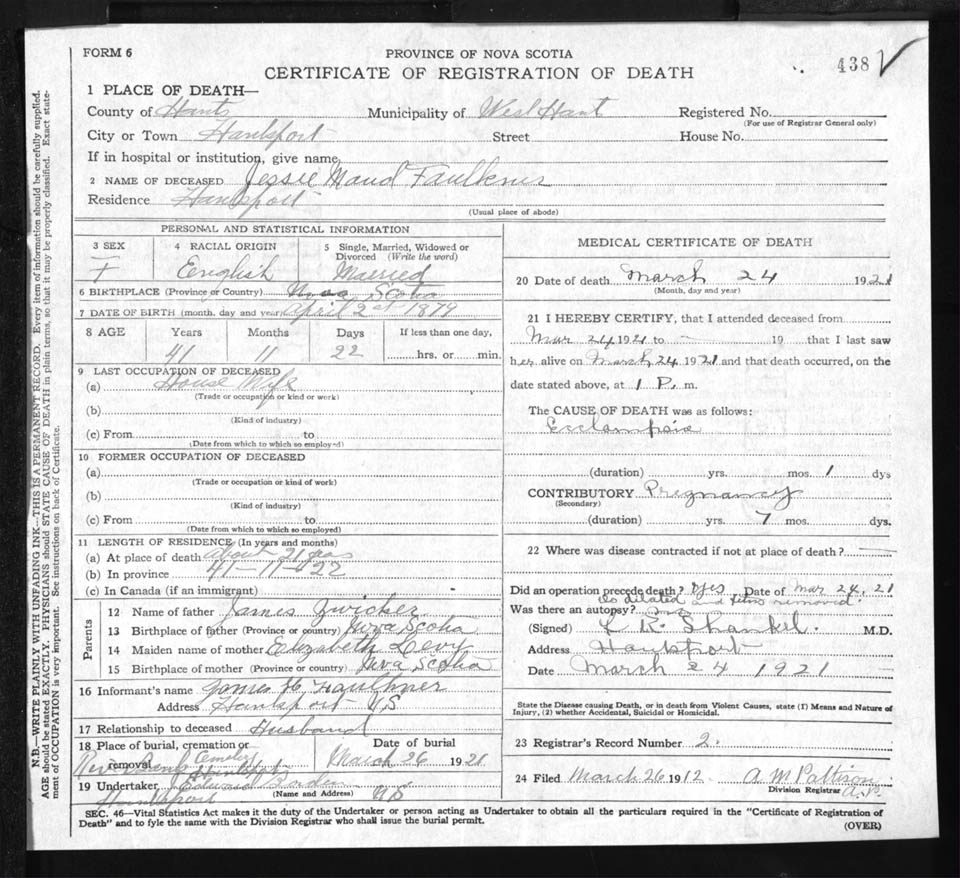 FORM 6
PROVINCE OF NOVA SCOTIA
438
CERTIFICATE OF REGISTRATION OF DEATH
1 PLACE OF DEATH—
County of Hants Municipality of West Hant Registered No.
(For use of Registrar General only)
City or Town Hantsport Street House No.
If in hospital or institution, give name
2 NAME OF DECEASED Jessie Maud Faulkner
Residence Hantsport
(Usual place of abode)
N.B.—WRITE PLAINLY WITH UNFADING INK—THIS IS A PERMANENT RECORD. Every item of information should be carefully supplied.
AGE should be stated EXACTLY. PHYSICIANS should STATE CAUSE OF DEATH in plain terms, so that it may be properly classified. Exact state-
ment of OCCUPATION is very important. See instructions on back of Certificate.
PERSONAL AND STATISTICAL INFORMATION
3 SEX 4 RACIAL ORIGIN 5 Single, Married, Widowed or
Divorced (Write the word)
F English Married
6 BIRTHPLACE (Province or Country) Nova Scotia
7 DATE OF BIRTH (month, day and year) April 2 1879
8 AGE Years Months Days If less than one day,
41 11 22 hrs. or min.
9 LAST OCCUPATION OF DECEASED
(a) House Wife
(Trade or occupation or kind or work)
(b)
(Kind of industry)
(c) From to
(Date from which to which so employed)
10 FORMER OCCUPATION OF DECEASED
(a)
(Trade or occupation or kind of work)
(b)
(Kind of industry)
(c) From to
(Date from which to which so employed)
11 LENGTH OF RESIDENCE (In years and months)
(a) At place of death about 21 years
(b) In province 41-11-22
(c) In Canada (if an immigrant)
Parents
12 Name of father James Zwicker
13 Birthplace of father (Province or country) Nova Scotia
14 Maiden name of mother Elizabeth Levy
15 Birthplace of mother (Province or country) Nova Scotia
16 Informant's name James H. Faulkner
Address Hantsport NS
17 Relationship to deceased Husband
18 Place of burial, cremation or removal Date of burial
River Bank Cemetery Hantsport March 26 1921
19 Undertaker Edward Borden
(Name and Address)
Hantsport NS
MEDICAL CERTIFICATE OF DEATH
20 Date of death March 24 1921
(Month, day and year)
21 I HEREBY CERTIFY, that I attended deceased from
Mar 24 1921 to — 19 that I last saw
her alive on March 24 1921 and that death occurred, on the
date stated above, at 1 P. m.
The CAUSE OF DEATH was as follows:
Ecclampsia
(duration) yrs. mos. 1 dys
CONTRIBUTORY Pregnancy
(Secondary)
(duration) yrs. 7 mos. dys.
22 Where was disease contracted if not at place of death? —
Did an operation precede death? Yes Date of Mar 24, 21
Os dilated and fetus removed.
Was there an autopsy? no
(Signed) Shankel. M.D.
Address Hantsport
Date March 24 1921
State the Disease causing Death, or in death from Violent Causes, state (1) Means and Nature of
Injury, (2) whether Accidental, Suicidal or Homicidal.
23 Registrar's Record Number 2.
24 Filed March 26 1912 A M Pattison
Division Registrar
SEC. 46—Vital Statistics Act makes it the duty of the Undertaker or person acting as Undertaker to obtain all the particulars required in the "Certificate of Registration of
Death" and to fyle the same with the Division Registrar who shall issue the burial permit.
(OVER)